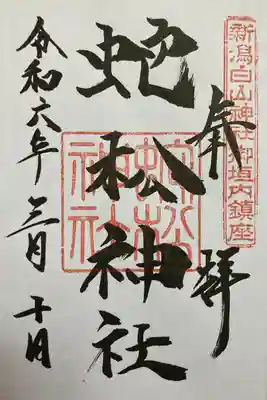 新潟白山神社御垣内鎮座
奉拝
蛇松神社
蛇松神社
令和六年三月十日